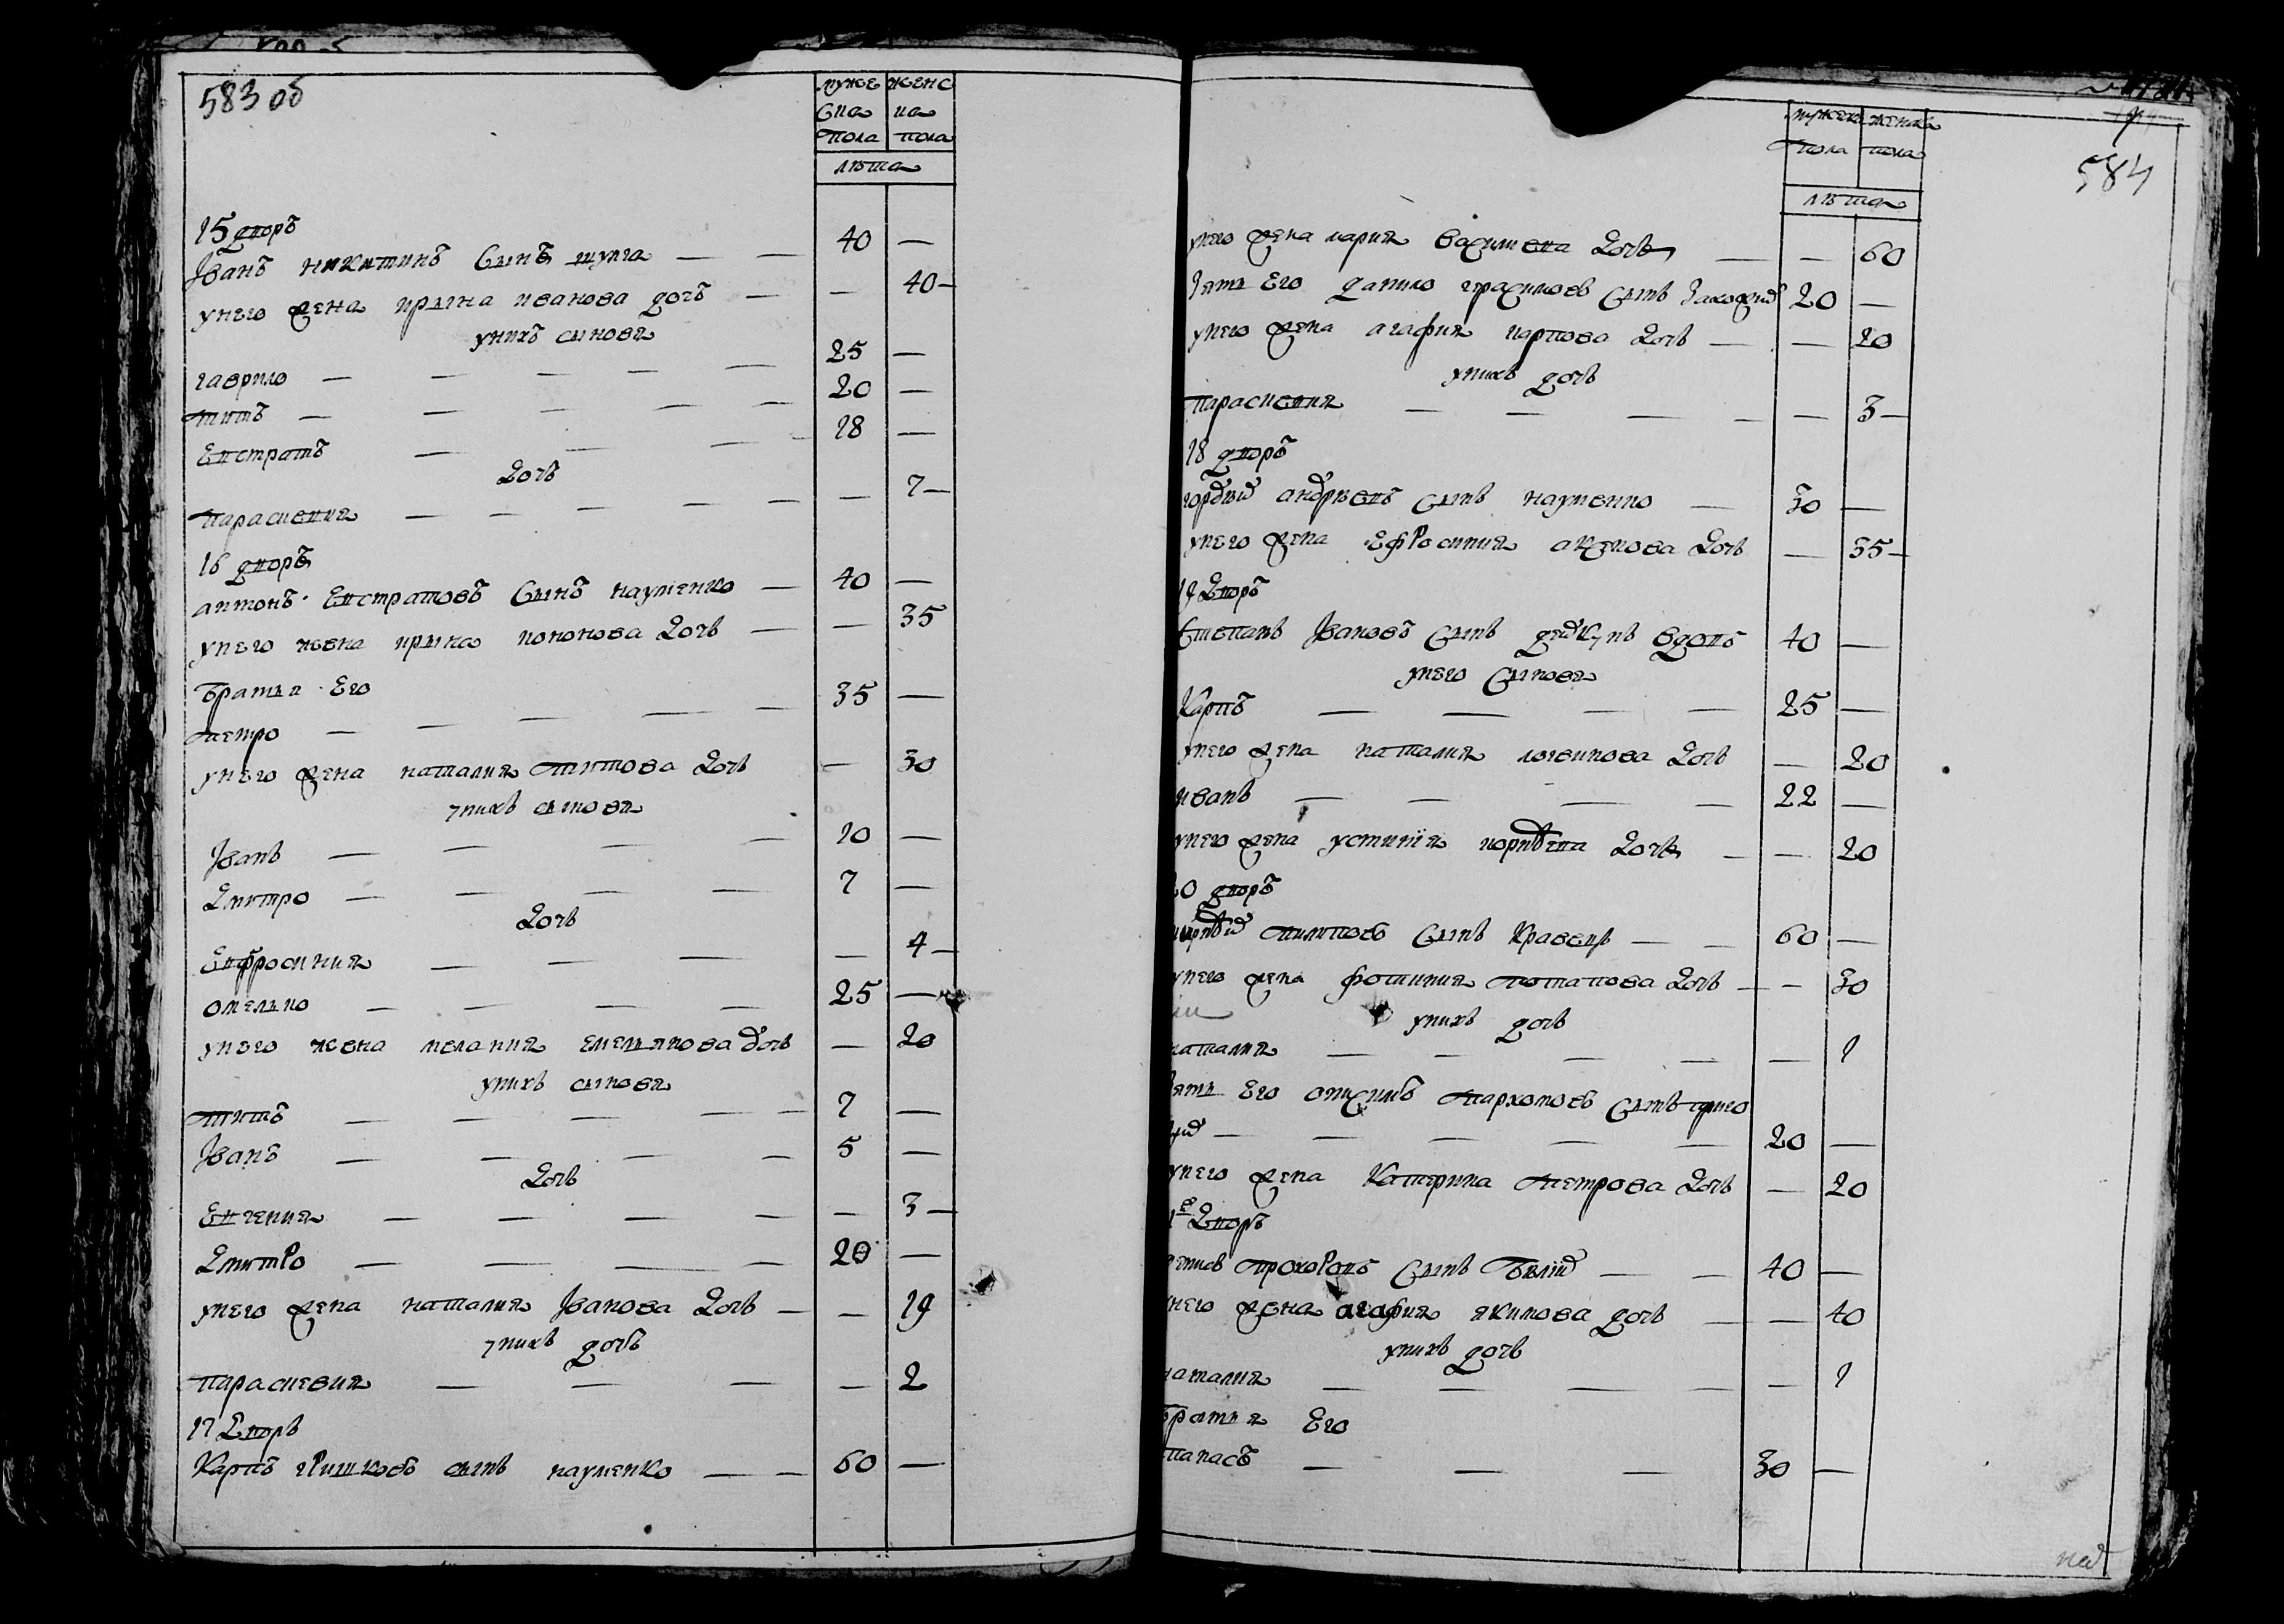 583 об
мужеска пола женска пола
лѣта
15 дворъ
Іванъ никитинъ Сынъ шуліа — — 40 —
унего жена ирына иванова дочъ — — 40
унихъ сыновя
гаврило — — — — — 25 —
титъ — — — — — 20 —
Евстратъ — — — 18 —
дочь
параскевия — — — — — — 7
16 дворъ
антонъ Евстратовъ Сынъ науменко — 40 —
унего жена ирына кононова дочь — — 35
братья Его
петро — — — — — 35 —
унего жена наталия титова дочь — 30
унихъ сыновя
Іванъ — — — — 10 —
дмитро — — — — 7 —
дочь
Евфросиния — — — — 4
омелко — — — — 25 —
унего жена мелания емелянова дочь — 20
унихъ сыновя
титъ — — — — — 7 —
Іванъ — — — — 5 —
дочь
Евгения — — — — — 3
дмитро — — — — 20 —
унего жена наталия Іванова дочь — — 19
унихъ дочь
параскевия — — — — 2
17 дворъ
Карпъ гришковъ сынъ науменко — — 60 —
584
мужеска пола женска пола
лѣта
унего жена мария василиева дочь — — 60
зять Его данило герасимовъ сынъ 20 —
унего жена агафия карпова дочь — — 20
унихъ дочь
параскевия — — — — — 3
18 дворъ
гордѣй андрѣевъ сынъ науменко — 30 —
унего жена ефросиния дочь — 35
19 дворъ
Степанъ Івановъ сынъ вдовъ 40 —
унего Сыновя
Карпъ — — — — 25 —
унего жена наталия логвинова дочь — 20
иванъ — — — — 22 —
унего жена устинія корнѣева дочь — — 20
20 дворъ
пилиповъ сынъ Кравецъ — — 60 —
унего жена фотиния потапова дочь — — 30
унихъ дочь
наталия — — — — — 1
зять Его онисимъ пархомовъ сынъ
— — — — — 20 —
унего жена Катерина петрова дочь — 20
дворъ
прохоровъ сынъ Бѣлій — — 40 —
унего жена агафия якимова дочь — — 40
унихъ дочь
наталия — — — — — 1
братья Его
панасъ — — — 30 —